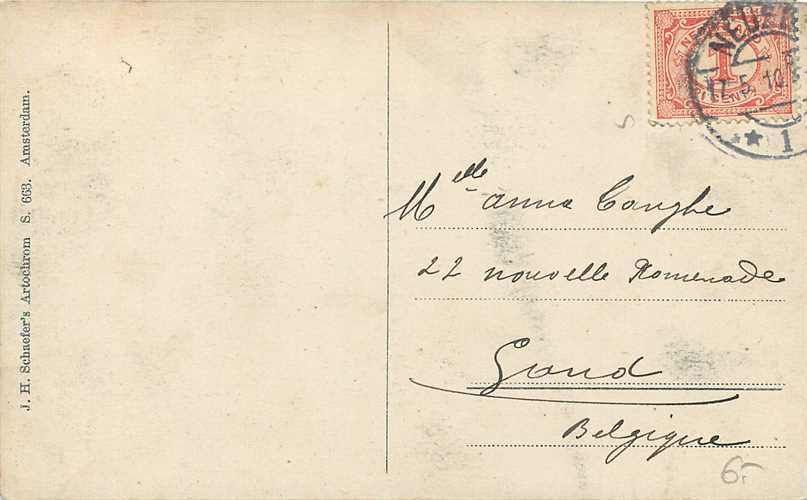 J. H. Schaefer's Artochrom S. 663. Amsterdam.
1
17 5 10
1
Mlle anna
22 nouvelle Promenade
Gand
Belgique
6-